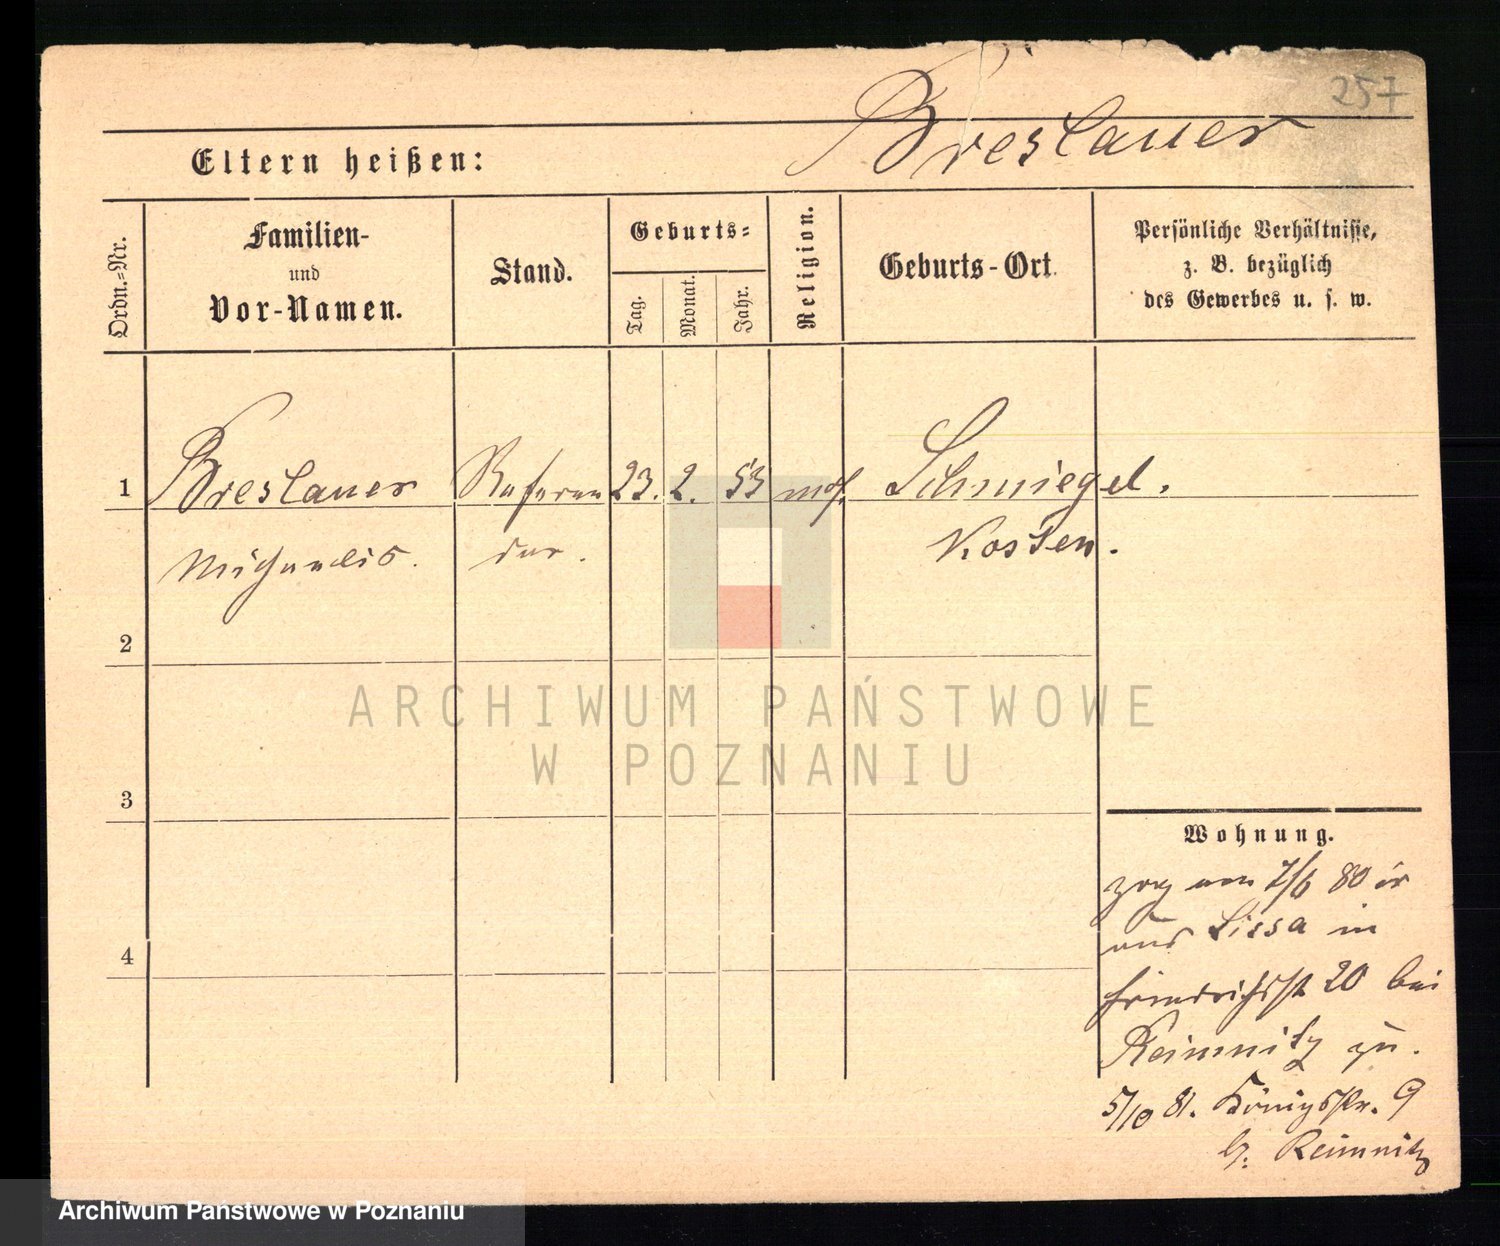 257
Breslauer
Eltern heißen:
Ordn.-Nr.
Familien-
und
Vor-Namen.
Stand.
Geburts-
Tag.
Monat.
Jahr.
Religion.
Geburts-Ort.
Persönliche Verhältnisse,
z. B. bezüglich
des Gewerbes u. s. w.
1 Breslauer Referen 23. 2. 53 mos. Schmiegel.
Michaelis. dar. Kosten.
2
3
4
ARCHIWUM PAŃSTWOWE
W POZNANIU
Wohnung.
zog am 7/6 80
aus Lissa in
Friedrichsst 20 bei
Reimnitz zu.
5/10 81. Königsstr. 9
b. Reimnitz
Archiwum Państwowe w Poznaniu